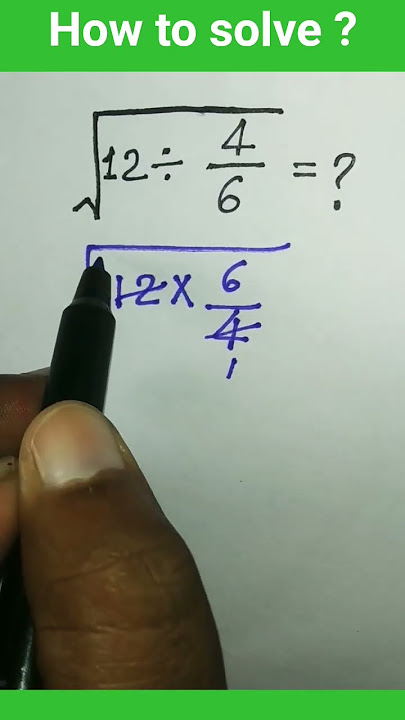 How to solve ?
√12 ÷ 4/6 = ?
√12 × 6/4
1